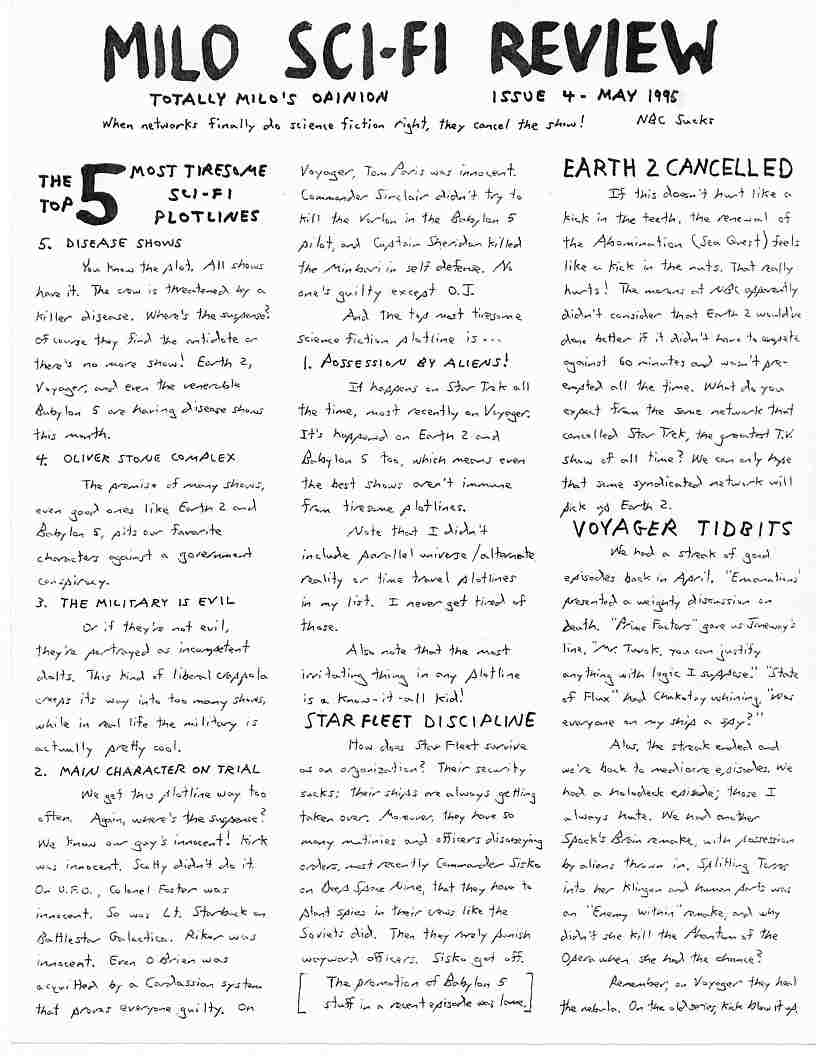 MILO SCI-FI REVIEW
TOTALLY MILO'S OPINION
ISSUE 4 - MAY 1995
When networks finally do science fiction right, they cancel the show!
NBC Sucks
THE TOP 5 MOST TIRESOME
SCI-FI
PLOTLINES
5. DISEASE SHOWS
You know the plot. All shows
have it. The crew is threatened by a
killer disease. Where's the suspense?
Of course they find the antidote or
there's no more show! Earth 2,
Voyager, and even the venerable
Babylon 5 are having disease shows
this month.
4. OLIVER STONE COMPLEX
The premise of many shows,
even good ones like Earth 2 and
Babylon 5, pits our favorite
characters against a government
conspiracy.
3. THE MILITARY IS EVIL
Or if they're not evil,
they're portrayed as incompetent
dolts. This kind of liberal crappola
creeps its way into too many shows,
while in real life the military is
actually pretty cool.
2. MAIN CHARACTER ON TRIAL
We get this plotline way too
often. Again, where's the suspense?
We know our guy's innocent! Kirk
was innocent. Scotty didn't do it.
On U.F.O., Colonel Foster was
innocent. So was Lt. Starbuck on
Battlestar Galactica. Riker was
innocent. Even O'Brien was
acquitted by a Cardassian system
that proves everyone guilty. On
Voyager, Tom Paris was innocent.
Commander Sinclair didn't try to
kill the Vorlon in the Babylon 5
pilot, and Captain Sheridan killed
the Minbari in self defense. No
one's guilty except O.J.
And the top most tiresome
science fiction plotline is...
1. POSSESSION BY ALIENS!
It happens on Star Trek all
the time, most recently on Voyager.
It's happened on Earth 2 and
Babylon 5 too, which means even
the best shows aren't immune
from tiresome plotlines.
Note that I didn't
include parallel universe/alternate
reality or time travel plotlines
in my list. I never get tired of
those.
Also note that the most
irritating thing in any plotline
is a know-it-all kid!
STAR FLEET DISCIPLINE
How does Star Fleet survive
as an organization? Their security
sucks; their ships are always getting
taken over. Moreover, they have so
many mutinies and officers disobeying
orders, most recently Commander Sisko
on Deep Space Nine, that they have to
plant spies in their crews like the
Soviets did. Then they rarely punish
wayward officers. Sisko got off.
[The promotion of Babylon 5
stuff in a recent episode was lame.]
EARTH 2 CANCELLED
If this doesn't hurt like a
kick in the teeth, the renewal of
the Abomination (Sea Quest) feels
like a kick in the nuts. That really
hurts! The morons at NBC apparently
didn't consider that Earth 2 would've
done better if it didn't have to compete
against 60 minutes and wasn't pre-
empted all the time. What do you
expect from the same network that
cancelled Star Trek, the greatest T.V.
show of all time? We can only hope
that some syndicated network will
pick up Earth 2.
VOYAGER TIDBITS
We had a streak of good
episodes back in April. "Emanations"
presented a weighty discussion on
death. "Prime Factors" gave us Janeway's
line, "Mr. Tuvok, you can justify
anything with logic I suppose." "State
of Flux" had Chakotay whining, "Was
everyone on my ship a spy?"
Alas, the streak ended and
we're back to mediocre episodes. We
had a holodeck episode; those I
always hate. We had another
Spock's Brain remake, with possession
by aliens thrown in. Splitting Torres
into her Klingon and human parts was
an "Enemy Within" remake, and why
didn't she kill the Phantom of the
Opera when she had the chance?
Remember, on Voyager they heal
the nebula. On the old series, Kirk blew it up.